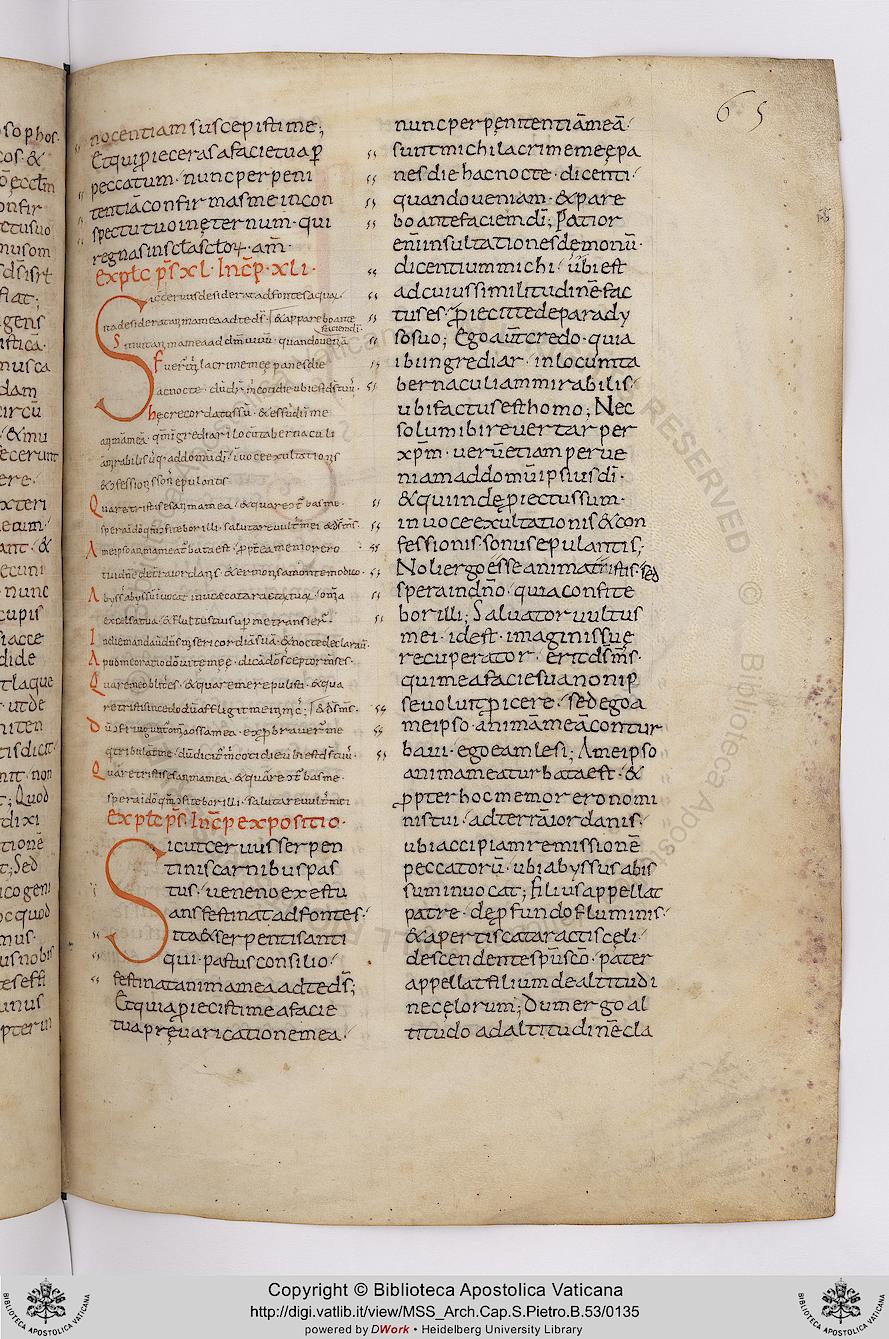 nocentiam suscepisti me;
Et qui piecerasafacie tua p̄
peccatum · nunc per peni
tentiā confirmasme in con
spectu tuo in ęternum · qui
regnas in sc̄la sc̄lor̄ · am̄ ·
explc̄ ps̄ xl · Inc̄p · xli ·
Sic cervus desiderat ad fontes aquar̄
ita desiderat anima mea ad te ds̄ · & apparebo ante
faciem di ·
Sitivit anima mea ad dm̄ vivū · quando veniā
Fuer̄ m̄ lacrime meę panes die
ac nocte · dū dr̄ m̄ cotidie ubi est ds̄ tuus ·
hęc recordatus sū · & effudi ī me
animā meā · qm̄ īgrediar ī locū tabernaculi
āmirabilis usq · ad domū di · ī voce exultationis
& cōfessionis son̄ epulantis
Quare tristis es anima mea · & quare ɔturbas me ·
spera ī dō qm̄ ɔfitebor illi · salutare vult̄ mei & ds̄ ms̄ ·
A meipso anima mea ɔturbata est · ppt̄ea memor ero
tui dn̄e de tr̄a iordanis · & ermon a monte modico ·
Abyss' abyssū īvocat · in voce cataractar̄ tuar̄ · om̄ia
excelsa tua · & fluctus tui sup̄ me transier̄ ·
In die mandav̄ dn̄s misericordiā suā · & nocte declarav̄ ·
Apud me oratio dō vite meę · dicā dō susceptor ms̄ es ·
Quare mei oblit' es · & quare me repulisti · & qua
re tristis incedo dū affligit me inimic' ; & ds̄ ms̄ ·
Dū ɔfringunt' om̄ia ossa mea · exp̄brauer̄ me
q tribulant me · dū dicūt m̄ cotidie ubi est ds̄ tuus ·
Quare tristis es anima mea · & quare ɔturbas me ·
spera ī dō qm̄ ɔfitebor illi · salutare vult̄ mei
explc̄ ps̄ · Inc̄p expositio ·
Sicut cervus serpen
tinis carnibus pas
tus · veneno exestu
ans festinat ad fontes ·
ita & serpentis anti
qui · pastus consilio ·
festinat anima mea ad te ds̄;
Et quia p̄iecisti me a facie
tua p̄ pręvaricatione mea ·
nunc per pęnitentiā meā ·
sunt michi lacrime meę pa
nes die hac nocte · dicenti ·
quando veniam · & pare
bo ante faciem di; Patior
enī insultationes demonū ·
dicentium michi · ubi est
ad cuius similitudinē fac
tus es · p̄iecit te de parady
so suo; Ego aūt credo · quia
ibi ingrediar · in locum ta
bernaculi ammirabilis ·
ubi factus est homo; Nec
solum ibi revertar per
xp̄m · verū etiam perve
niam ad domū ipsius di ·
& qui inde p̄iectus sum ·
in voce exultationis & con
fessionis · sonus epulantis;
Noli ergo esse anima tristis · sed
spera in dn̄o · quia confite
bor illi; Salvator vultus
mei · id est · imaginis suę
recuperator · erit ds̄ ms̄ ·
qui me a facie sua non ip
se voluit p̄icere · sed ego a
meipso · animā meā contur
bavi · ego eam lesi; A meipso
anima mea turbata est · &
ppter hoc memor ero nomi
nis tui · ad terrā iordanis ·
ubi accipiam remissionē
peccatorū · ubi abyssus abis
sum invocat; filius appellat
patrē · de p̄fundo fluminis ·
& apertis cataractis cęli ·
descendente sp̄u sc̄o · pater
appellat filium de altitudi
ne cęlorum; Dum ergo al
titudo ad altitudinē cla
65
Copyright © Biblioteca Apostolica Vaticana
http://digi.vatlib.it/view/MSS_Arch.Cap.S.Pietro.B.53/0135
powered by DWork • Heidelberg University Library